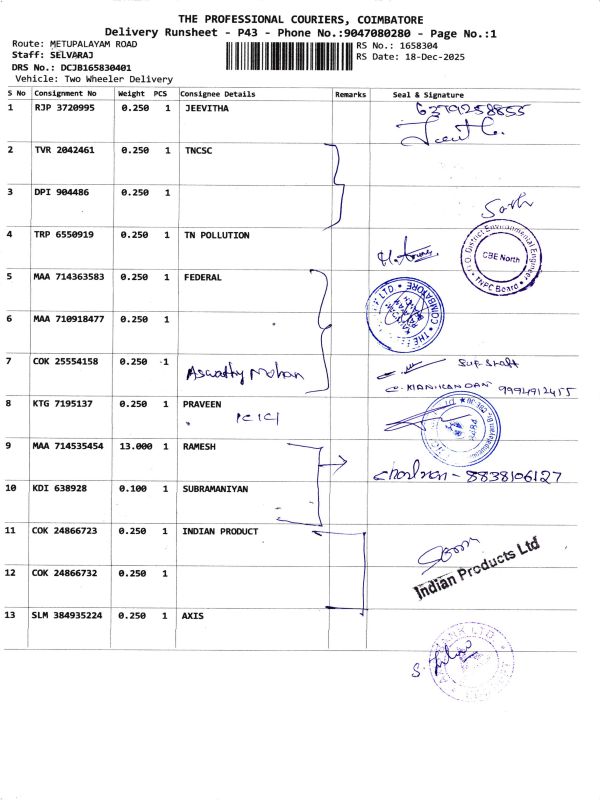 THE PROFESSIONAL COURIERS, COIMBATORE
Delivery Runsheet - P43 - Phone No.:9047080280 - Page No.:1
Route: METUPALAYAM ROAD
Staff: SELVARAJ
DRS No.: DCJB165830401
Vehicle: Two Wheeler Delivery
RS No.: 1658304
RS Date: 18-Dec-2025
S No Consignment No Weight PCS Consignee Details Remarks Seal & Signature
1 RJP 3720995 0.250 1 JEEVITHA 6379258855
2 TVR 2042461 0.250 1 TNCSC
3 DPI 904486 0.250 1
4 TRP 6550919 0.250 1 TN POLLUTION
District Environmental Engineer
CBE North
TNPC Board
5 MAA 714363583 0.250 1 FEDERAL
COIMBATORE
6 MAA 710918477 0.250 1
7 COK 25554158 0.250 1 Aswathy Mohan
9994912455
8 KTG 7195137 0.250 1 PRAVEEN
ICICI
9 MAA 714535454 13.000 1 RAMESH
8838106127
10 KDI 638928 0.100 1 SUBRAMANIYAN
11 COK 24866723 0.250 1 INDIAN PRODUCT
Indian Products Ltd
12 COK 24866732 0.250 1
13 SLM 384935224 0.250 1 AXIS
BANK LTD.